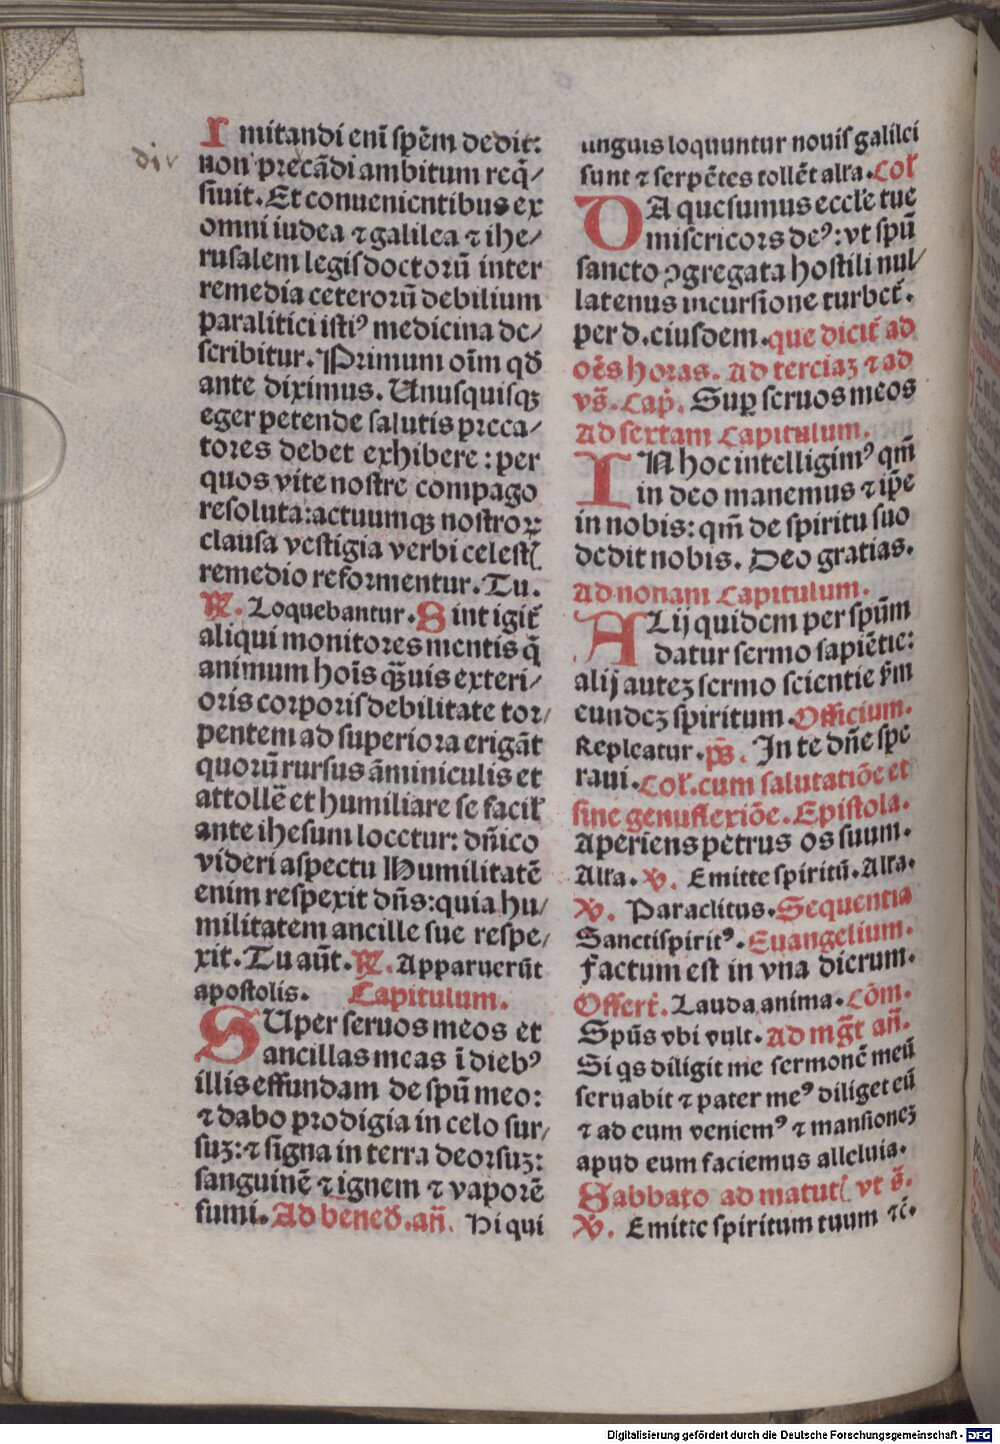 div
Imitandi enī spēm dedit:
non precādi ambitum req̄/
siuit. Et conuenientibus ex
omni iudea ⁊ galilea ⁊ ihe/
rusalem legis doctorū inter
remedia ceterorū debilium
paralitici istiꝰ medicina de/
scribitur. Primum oīm qđ
ante diximus. Unusquisqꝫ
eger petende salutis preca/
tores debet exhibere: per
quos vite nostre compago
resoluta: actuumqꝫ nostroꝝ
clausa vestigia verbi celest
remedio reformentur. Tu.
℟. Loquebantur. Sint igit̄
aliqui monitores mentis q̄
animum hoīs qꝫuis exteri/
oris corporis debilitate tor/
pentem ad superiora erigāt
quorū rursus āminiculis et
attollē et humiliare se facil̄
ante ihesum locetur: dñico
videri aspectu Humilitatē
enim respexit dñs: quia hu/
militatem ancille sue respe/
xit. Tu aūt. ℟. Apparuerūt
apostolis. Capitulum.
SUper seruos meos et
ancillas meas ī diebꝰ
illis effundam de spū meo:
⁊ dabo prodigia in celo sur/
suꝫ: ⁊ signa in terra deorsuꝫ:
sanguinē ⁊ ignem ⁊ vaporē
fumi. Ad bened̄. añ. Hi qui
unguis loquuntur nouis galilei
sunt ⁊ serpētes tollēt alla. Col̄
DA quesumus eccl̄e tue
misericors deꝰ: vt spū
sancto ꝯgregata hostili nul/
latenus incursione turbet̄.
per d. eiusdem. que dicit̄ ad
oēs horas. Ad terciaꝫ ⁊ ad
vs̄. Cap̄. Sup seruos meos
Ad sextam Capitulum.
IN hoc intelligimꝰ qm̄
in deo manemus ⁊ ip̄e
in nobis: qm̄ de spiritu suo
dedit nobis. Deo gratias.
Ad nonam Capitulum.
ALij quidem per spūm
datur sermo sapiētie:
alij auteꝫ sermo scientie s̄m
eundeꝫ spiritum. Officium.
Repleatur. ps̄. In te dñe spe
raui. Col̄. cum salutatiōe et
sine genuflexiōe. Epistola.
Aperiens petrus os suum.
Alla. ℣. Emitte spiritū. Alla.
℣. Paraclitus. Sequentia
Sancti spiritꝰ. Euangelium.
Factum est in vna dierum.
Offert̄. Lauda anima. Cōm.
Spūs vbi vult. Ad mḡt añ.
Si qs diligit me sermonē meū
seruabit ⁊ pater meꝰ diliget eū
⁊ ad eum veniemꝰ ⁊ mansioneꝫ
apud eum faciemus alleluia.
Sabbato ad matut vt s̄.
℣. Emitte spiritum tuum ⁊c̄.
Digitalisierung gefördert durch die Deutsche Forschungsgemeinschaft - DFG